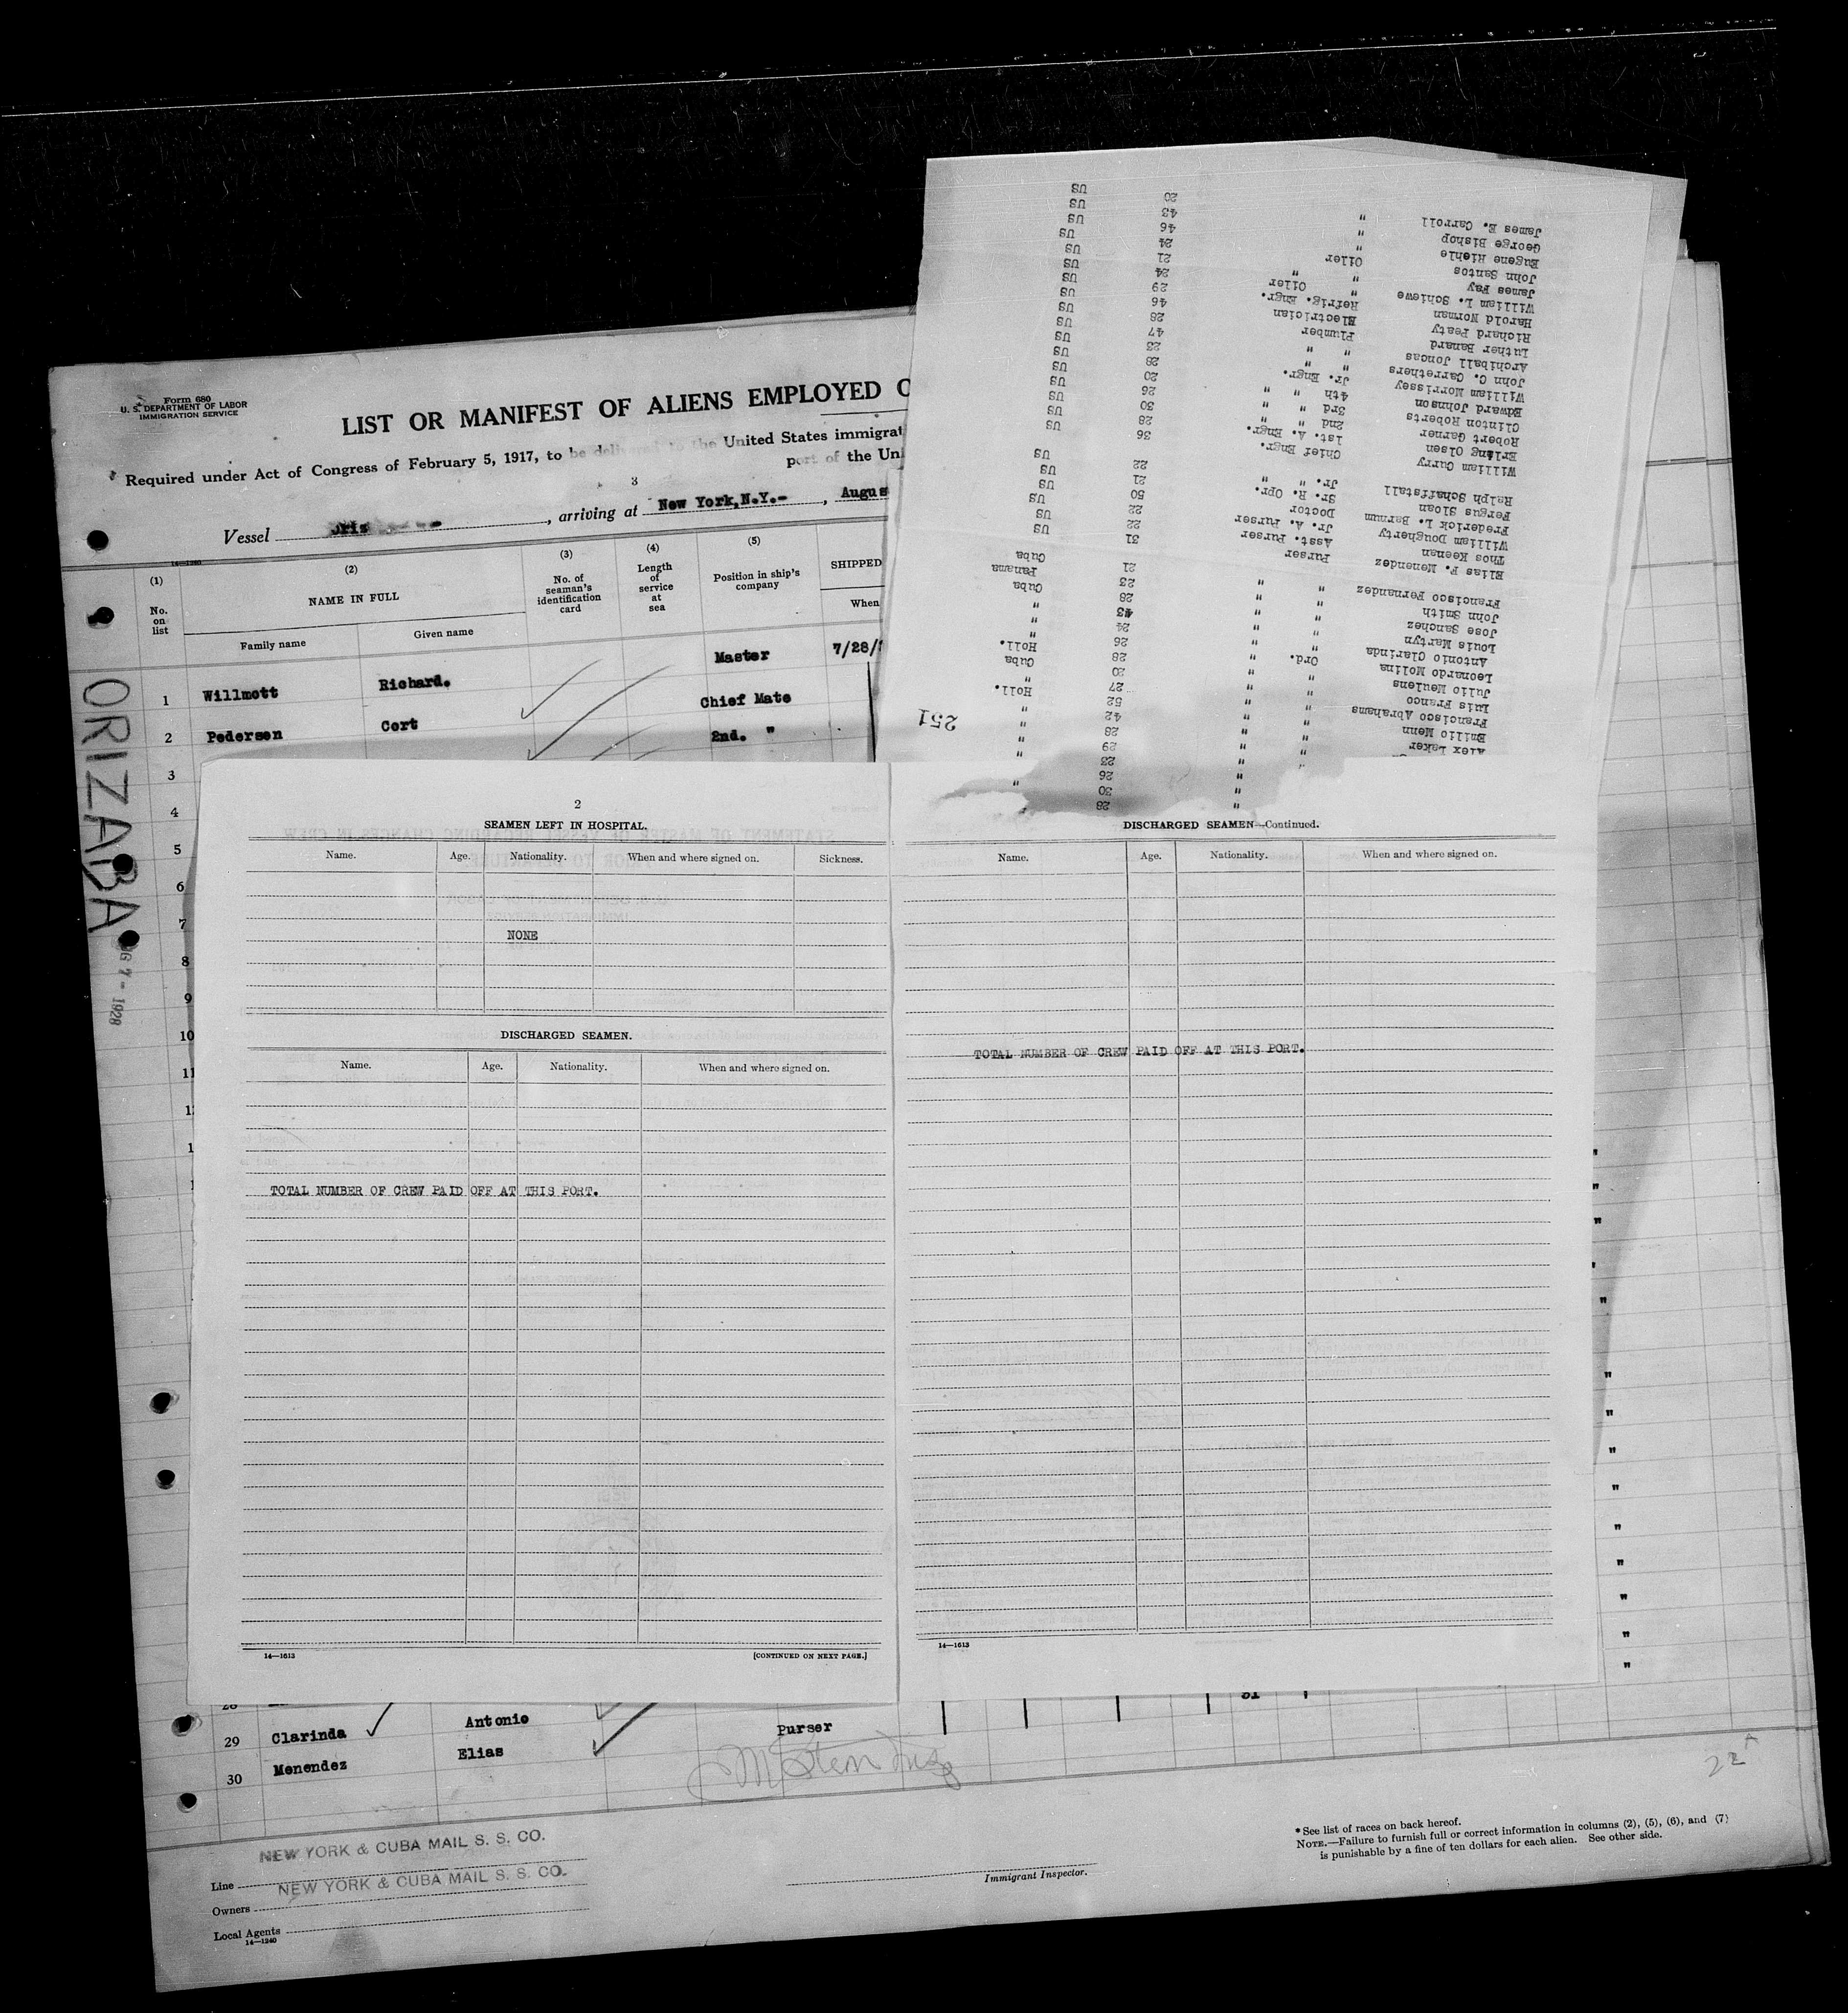 Form 680
U. S. DEPARTMENT OF LABOR
IMMIGRATION SERVICE
LIST OR MANIFEST OF ALIENS EMPLOYED O
Required under Act of Congress of February 5, 1917, to be delivered to the United States immigrat
port of the Uni
3
Vessel Oriz , arriving at New York,N.Y.- , Augus
14—1240
(1) (2) (3) (4) (5)
No. on list NAME IN FULL No. of seaman's identification card Length of service at sea Position in ship's company SHIPPED
When
Family name Given name
1 Willmott Richard. Master 7/28/
2 Pedersen Cort Chief Mate
3 2nd. "
4
5
6
7
8
9
10
11
ORIZABA
7 - 1928
28
29 Clarinda Antonio
30 Menendez Elias Purser
22
NEW YORK & CUBA MAIL S. S. CO.
Line
NEW YORK & CUBA MAIL S. S. CO.
Owners
Local Agents
14—1240
Immigrant Inspector.
* See list of races on back hereof.
NOTE.—Failure to furnish full or correct information in columns (2), (5), (6), and (7)
is punishable by a fine of ten dollars for each alien. See other side.
2
SEAMEN LEFT IN HOSPITAL.
Name. Age. Nationality. When and where signed on. Sickness.
NONE
DISCHARGED SEAMEN.
Name. Age. Nationality. When and where signed on.
TOTAL NUMBER OF CREW PAID OFF AT THIS PORT.
14—1613 [CONTINUED ON NEXT PAGE.]
DISCHARGED SEAMEN—Continued.
Name. Age. Nationality. When and where signed on.
TOTAL NUMBER OF CREW PAID OFF AT THIS PORT.
14—1613
251
" 28
" 30 "
" 26
" 23 "
" 29 "
" 28 "
Alex Laker " " 42 "
Emilio Menn " " 52 Holl.
Francisco Abrahams " " 27 "
Luis Franco " " 20 Cuba
Julio Meulens " " 28 Holl.
Leonardo Molina Ord. " 26 "
Antonio Clarinda " " 24 "
Louis Martyn " " 43 "
Jose Sanchez " " 28 Cuba
John Smith " " 23 Panama
Francisco Fernandez " " 21 Cuba
Elias F. Menendez Purser 31 US
Thos Keenan Asst. Purser 22 US
William Dougherty Jr. A. Purser 22 US
Frederick L. Barnum Doctor 50 US
Fergus Sloan Sr. R. Opr. 21 US
Ralph Schaffstall Jr. " " 22 US
William Curry Chief Engr. 36 US
Erling Olsen 1st. A. Engr. 28 US
Robert Garner 2nd " " 30 US
Clinton Roberts 3rd " " 26 US
Edward Johnson 4th " " 20 US
William Morrissey Jr. Engr. 28 US
John C. Carrethers " " 23 US
Archiball Joncas " " 47 US
Luther Banard Plumber 28 US
Richard Peaty Electrician 46 US
Harold Norman Refrig. Engr. 29 US
William L. Schiewe " Oiler 24 US
James Fay " " 21 US
John Santos Oiler 24 US
Eugene Riehle " 46 US
George Bishop " 43 US
James E. Carroll " 20 US